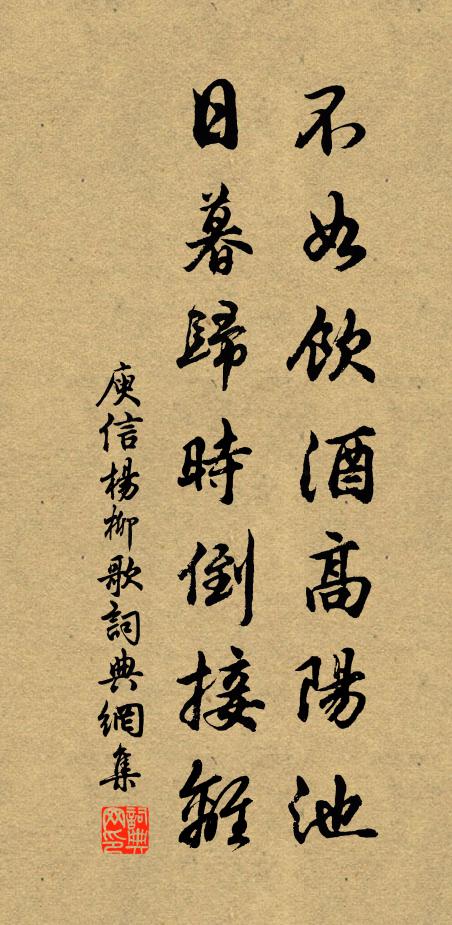 不如飲酒高陽池
日暮歸時倒接離
庾信楊柳歌詞典網集
詞典网印